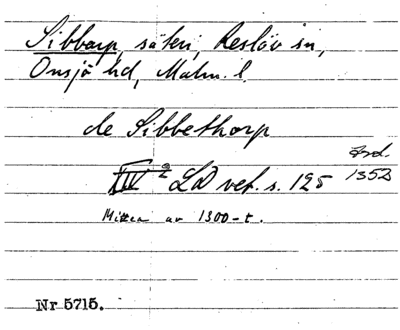 Sibbarp, säteri, Reslöv sn,
Onsjö hd, Malm. l.
de Sibbethorp
IV 2 LD vet. s. 125
1353
Mitten av 1300-t.
Nr 5715.